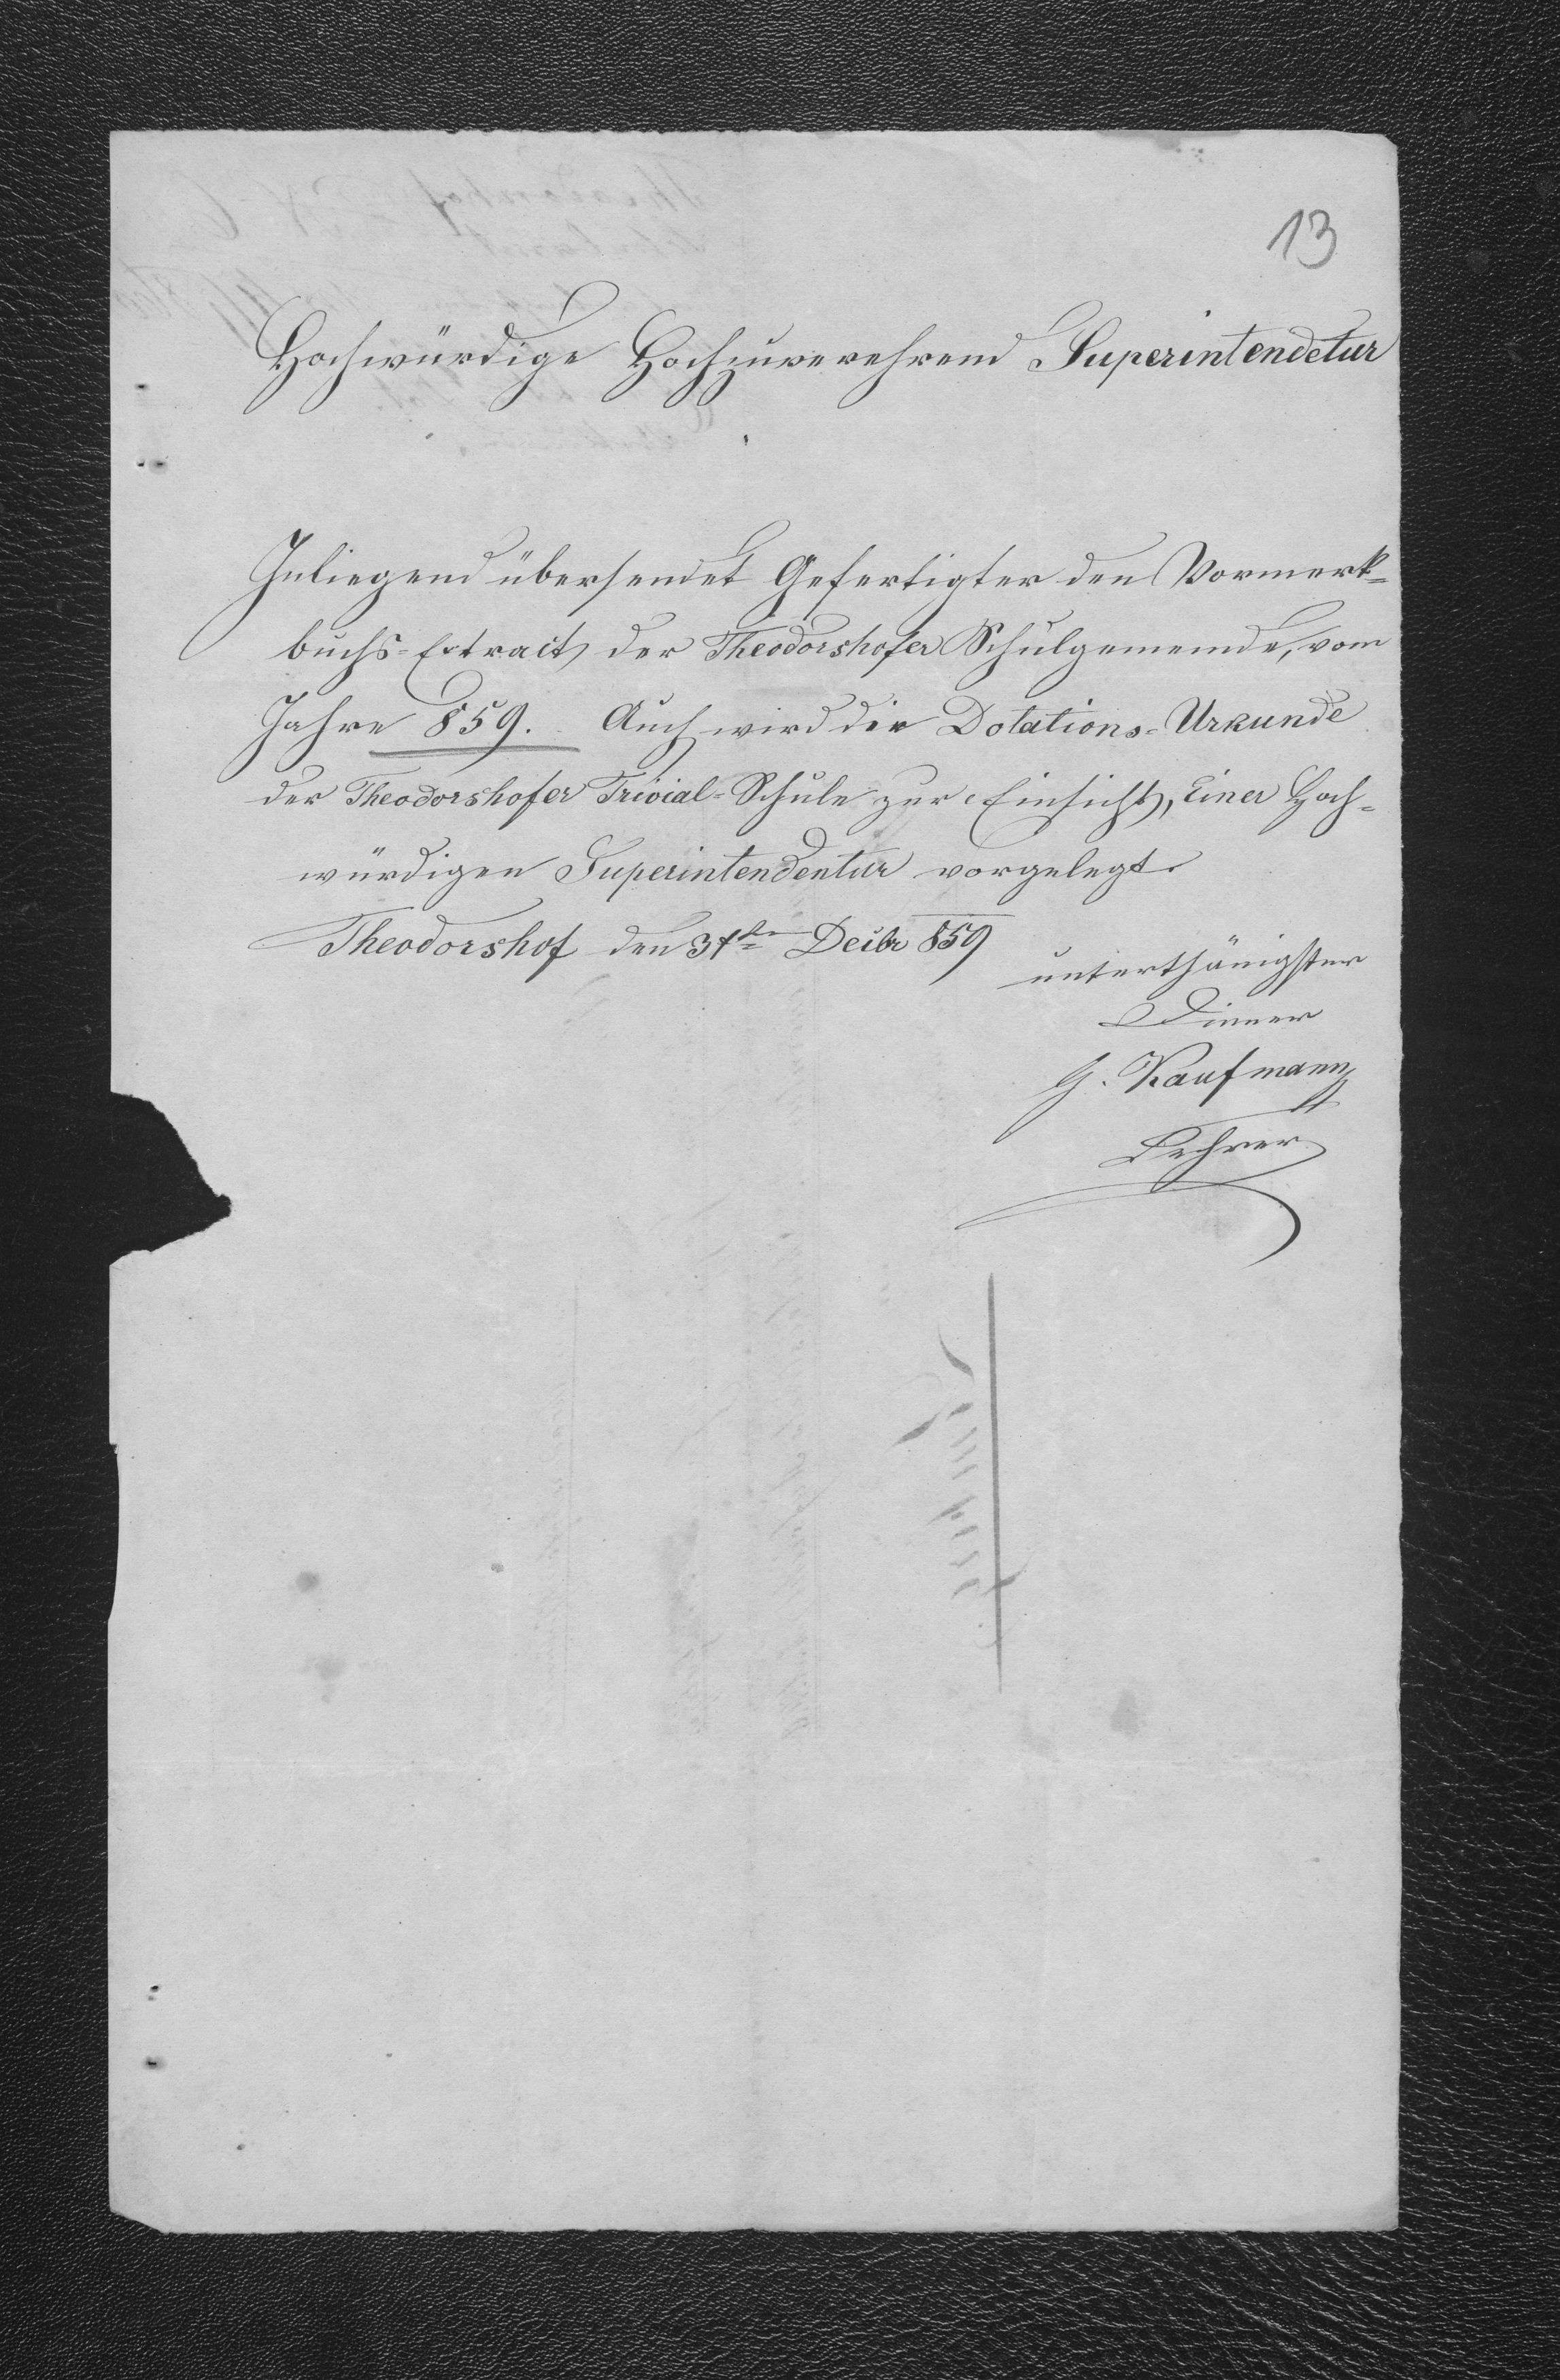 13
Hochwürdige Hochzuverehrend Superintendetur
Inliegend übersendet Gefertigter den Vormerk=
buchs=Extract der Theodorshofer Schulgemeinde, vom
Jahre 859. Auch wird die Dotations=Urkunde
der Theodorshofer Trivial=Schule zur Einsicht, Einer Hoch=
würdigen Superintendentur vorgelegt.
Theodorshof den 31ten Decbr 859
unterthänigster
Diener
G. Kaufmann
Lehrer